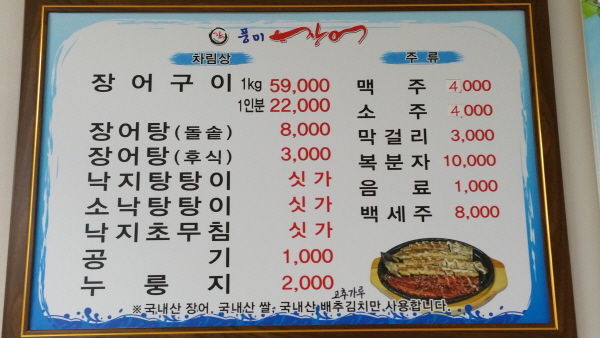 풍미 장어
차림상
장어구이 1kg 59,000
1인분 22,000
장어탕(돌솥) 8,000
장어탕(후식) 3,000
낙지탕탕이 싯가
소낙탕탕이 싯가
낙지초무침 싯가
공기 1,000
누룽지 2,000
주류
맥주 4,000
소주 4,000
막걸리 3,000
복분자 10,000
음료 1,000
백세주 8,000
고추가루
※국내산 장어, 국내산 쌀, 국내산 배추김치만 사용합니다.